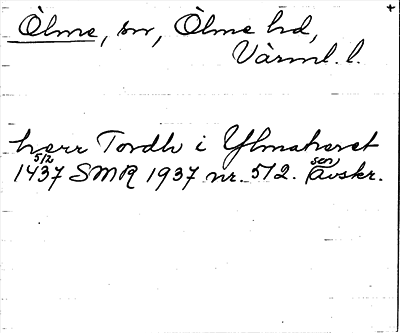 Ölme, sn, Ölme hd,
Värml. l.
herr Tordh i Ylmahæret
5/2
1437 SMR 1937 nr. 512. sen avskr.